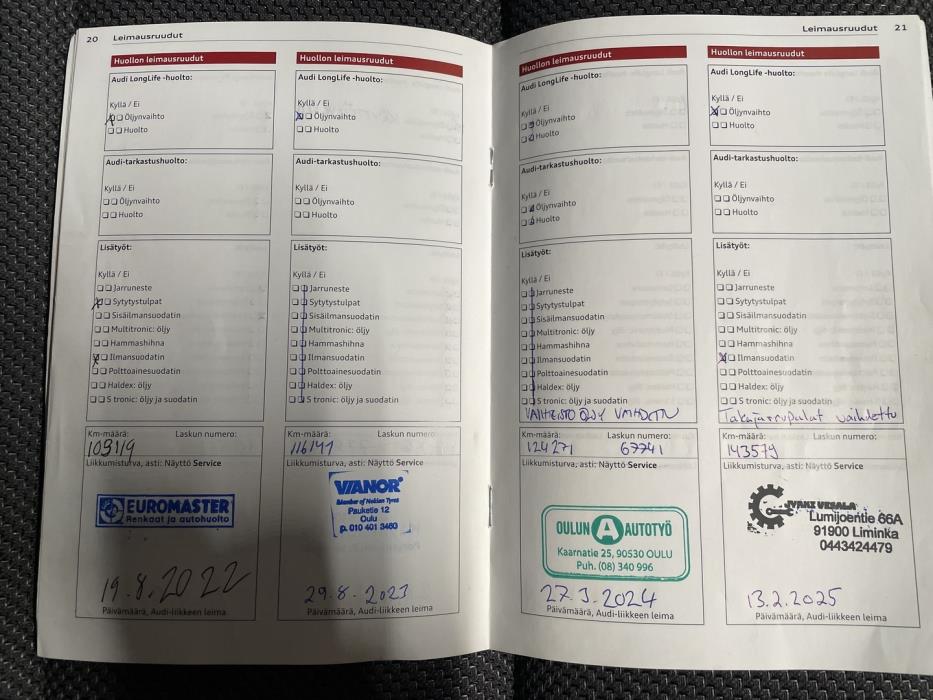 20 Leimausruudut
Huollon leimausruudut
Audi LongLife -huolto:
Kyllä / Ei
Öljynvaihto
Huolto
Audi-tarkastushuolto:
Kyllä / Ei
Öljynvaihto
Huolto
Lisätyöt:
Kyllä / Ei
Jarruneste
Sytytystulpat
Sisäilmansuodatin
Multitronic: öljy
Hammashihna
Ilmansuodatin
Polttoainesuodatin
Haldex: öljy
S tronic: öljy ja suodatin
Km-määrä: Laskun numero:
103119
Liikkumisturva, asti: Näyttö Service
EUROMASTER
Renkaat ja autohuolto
19.8.2022
Päivämäärä, Audi-liikkeen leima
Huollon leimausruudut
Audi LongLife -huolto:
Kyllä / Ei
Öljynvaihto
Huolto
Audi-tarkastushuolto:
Kyllä / Ei
Öljynvaihto
Huolto
Lisätyöt:
Kyllä / Ei
Jarruneste
Sytytystulpat
Sisäilmansuodatin
Multitronic: öljy
Hammashihna
Ilmansuodatin
Polttoainesuodatin
Haldex: öljy
S tronic: öljy ja suodatin
Km-määrä: Laskun numero:
Liikkumisturva, asti: Näyttö Service
VIANOR
Member of Nokian Tyres
Pauketie 12
Oulu
p. 010 401 3460
29.8.2023
Päivämäärä, Audi-liikkeen leima
Leimausruudut 21
Huollon leimausruudut
Audi LongLife -huolto:
Kyllä / Ei
Öljynvaihto
Huolto
Audi-tarkastushuolto:
Kyllä / Ei
Öljynvaihto
Huolto
Lisätyöt:
Kyllä / Ei
Jarruneste
Sytytystulpat
Sisäilmansuodatin
Multitronic: öljy
Hammashihna
Ilmansuodatin
Polttoainesuodatin
Haldex: öljy
S tronic: öljy ja suodatin
VAIHTEISTO ÖLJY
Km-määrä: Laskun numero:
124271 67741
Liikkumisturva, asti: Näyttö Service
OULUN A AUTOTYÖ
Kaarnatie 25, 90530 OULU
Puh. (08) 340 996
27.3.2024
Päivämäärä, Audi-liikkeen leima
Huollon leimausruudut
Audi LongLife -huolto:
Kyllä / Ei
Öljynvaihto
Huolto
Audi-tarkastushuolto:
Kyllä / Ei
Öljynvaihto
Huolto
Lisätyöt:
Kyllä / Ei
Jarruneste
Sytytystulpat
Sisäilmansuodatin
Multitronic: öljy
Hammashihna
Ilmansuodatin
Polttoainesuodatin
Haldex: öljy
S tronic: öljy ja suodatin
Takajarrupalat vaihdettu
Km-määrä: Laskun numero:
143579
Liikkumisturva, asti: Näyttö Service
VESALA
Lumijoentie 66A
91900 Liminka
0443424479
13.2.2025
Päivämäärä, Audi-liikkeen leima